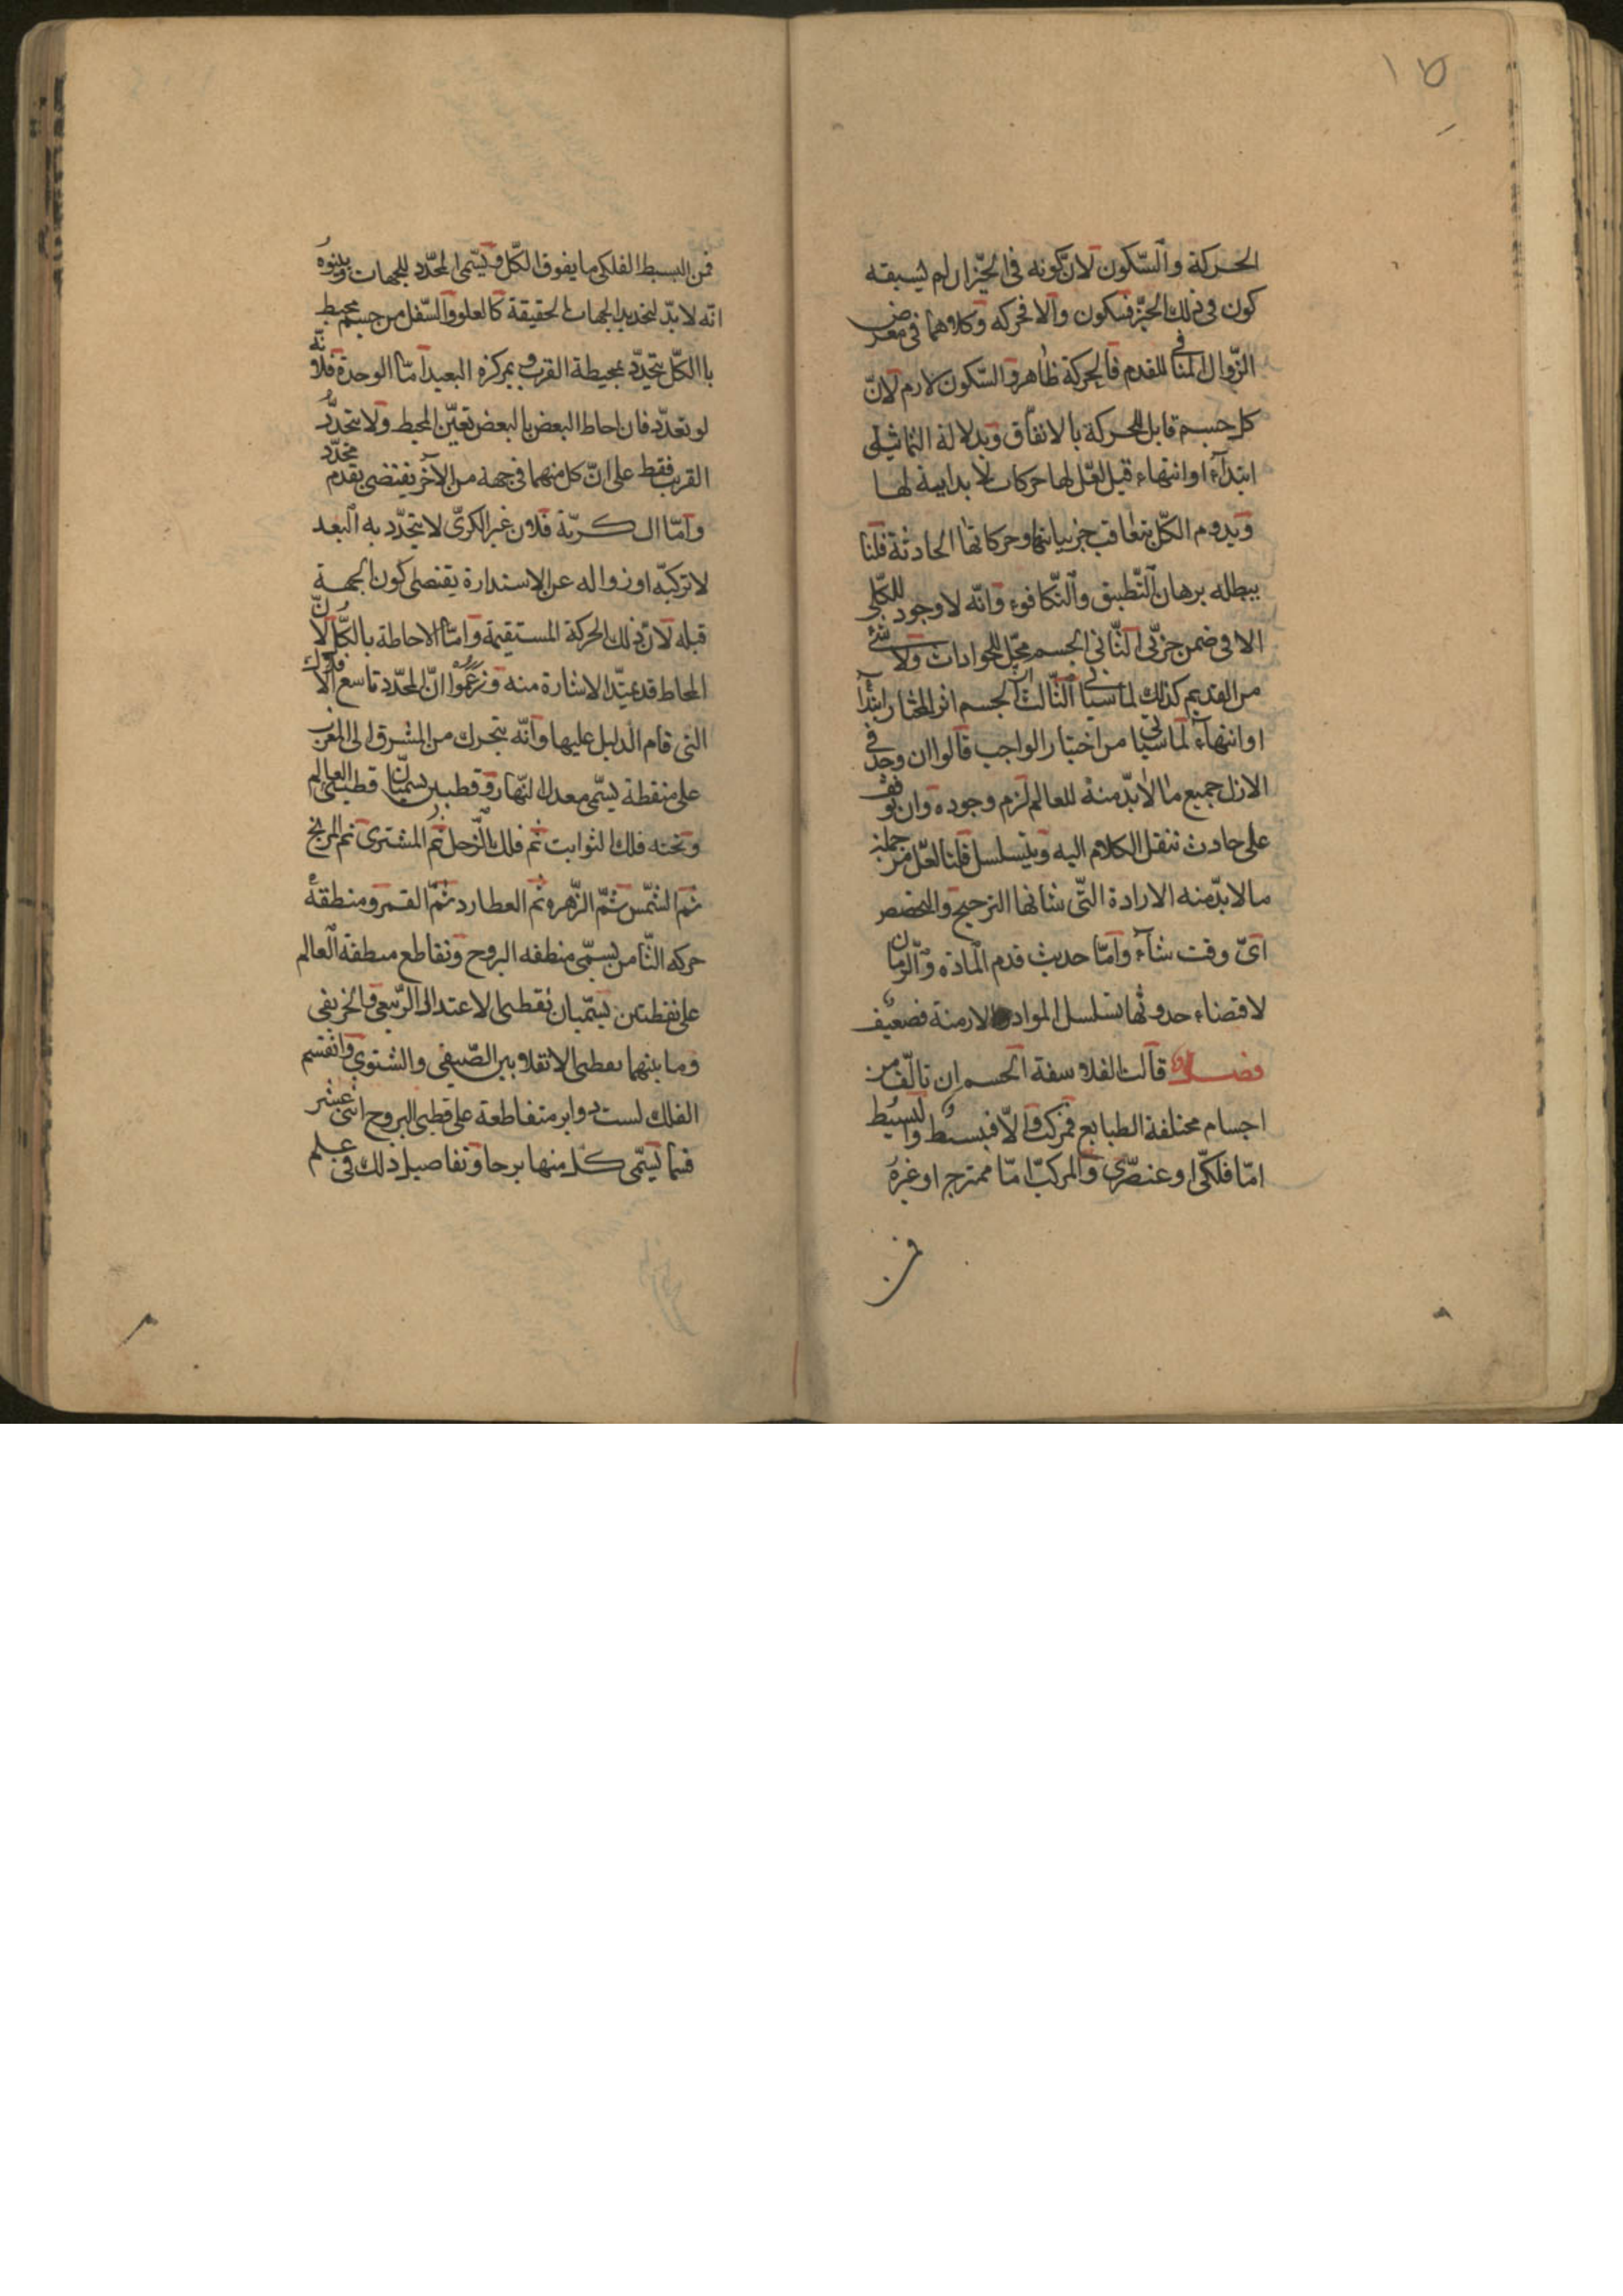 ١٥
الحركة والسّكون لانّ كونه فى الحيّز ان لم يسبقه
كون فى ذلك الحيّز فسكون والا فحركه وكلاهما فى معرض
الزّوال المنافى للقدم فالحركة ظاهر والسّكون لازم لانّ
كل جسم قابل للحركة بالاتفاق وبدلالة التماثيلى
ابتداءً او انتهاء قيل لعّل لها حركات لا بداية لها
ويدوم الكّل بتعاقب جزيياتها وحركاتها الحادثة قلنا
يبطله برهان التّطبيق والتّكافوء وانّه لا وجود للكّلى
الا فى ضمن جزئى الثّانى الجسم محّل للحوادث ولا شئ
من القديم كذلك لما سيأتى الثّالث الجسم اثر المختار ابتداً
او انتهاءً لما سيأتى من اختيار الواجب قالوا ان وجد فى
الازل جميع ما لا بدّ منه للعالم لزم وجوده وان توقف
على حادث ننقل الكلام اليه ويتسلسل قلنا لعّل من جملة
ما لا بدّ منه الارادة الّتى شانها الترجيح والتخصص
اىّ وقت شآء وامّا حديث قدم المادّة والزّمان
لاقضاء حدوثها تسلسل المواد والازمنة فضعيف
فصل قالت الفلاسفة الجسم ان تالّف من
اجسام مختلفة الطبايع فمركّب والّا فبسيط والبسيط
امّا فلكّى او عنصّرى والمركّب امّا ممتزج او غيره
فمن
فمن البسيط الفلكى ما يفوق الكّل ويسّمى المحّدد للجهات وبينوه
انّه لا بدّ لتحديد الجهات الحقيقة كالعلو والسّفل من جسم محيط
باالكّل يتحدّد بمحيطة القرب وبمركزه البعيد امّا الوحدة فلانّه
لو تعدّد فان احاط البعض بالبعض تعيّن المحيط ولا يتحدّد
القرب فقط على انّ كل منهما فى جهة من الآخر يقتضى تقدم محدّد
وامّا الكريّة فلان غير الكرىّ لا يتحدّد به البعد
لا تركبّه او زواله عن الاستدارة يقتضى كون الجهة
قبله لانّ ذلك الحركة المستقيمة وامّا الاحاطة بالكّل لانّ
المحاط قد يمتدّ الاشارة منه وزعموا انّ المحّدد تاسع الافلاك
التى قام الدليل عليها وانّه يتحرك من المشرق الى المغرب
على منقطة يسّمى معدل النّهار وقطبين يسمّيان قطبى العالم
وتحته فلك الثوابت ثم فلك الزّحل ثم المشترى ثم المريخ
ثم الشّمس ثمّ الزّهره ثم العطارد ثمّ القمر ومنطقة
حركه الثّامن يسمّى منطقه البروج وتقاطع منطقة العالم
على نقطتين يسمّيان نقطى الاعتدال الرّبيعى والخريفى
وما بينهما نقطى الانقلابين الصّيفى والشتوى وانقسم
الفلك لست دواير متقاطعة على قطبى البروج اثنى عشر
قسما يسّمى كل منها برجا وتفاصيل ذلك فى علم